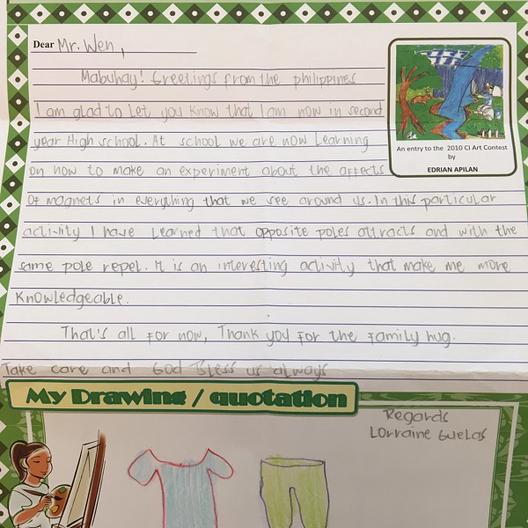 Dear Mr. Wen,
Mabuhay! Greetings from the philippines
I am glad to let you know that I am now in second
year High school. At school we are now Learning
on how to make an experiment about the affects
Of magnets in everything that we see around us. In this particular
activity I have Learned that opposite poles attracts and with the
same pole repel. It is an interesting activity that make me more
Knowledgeable.
That's all for now, Thank you for the family hug.
Take care and God Bless us always
An entry to the 2010 CI Art Contest
by
EDRIAN APILAN
My Drawing / quotation
Regards
Lorraine Guelas